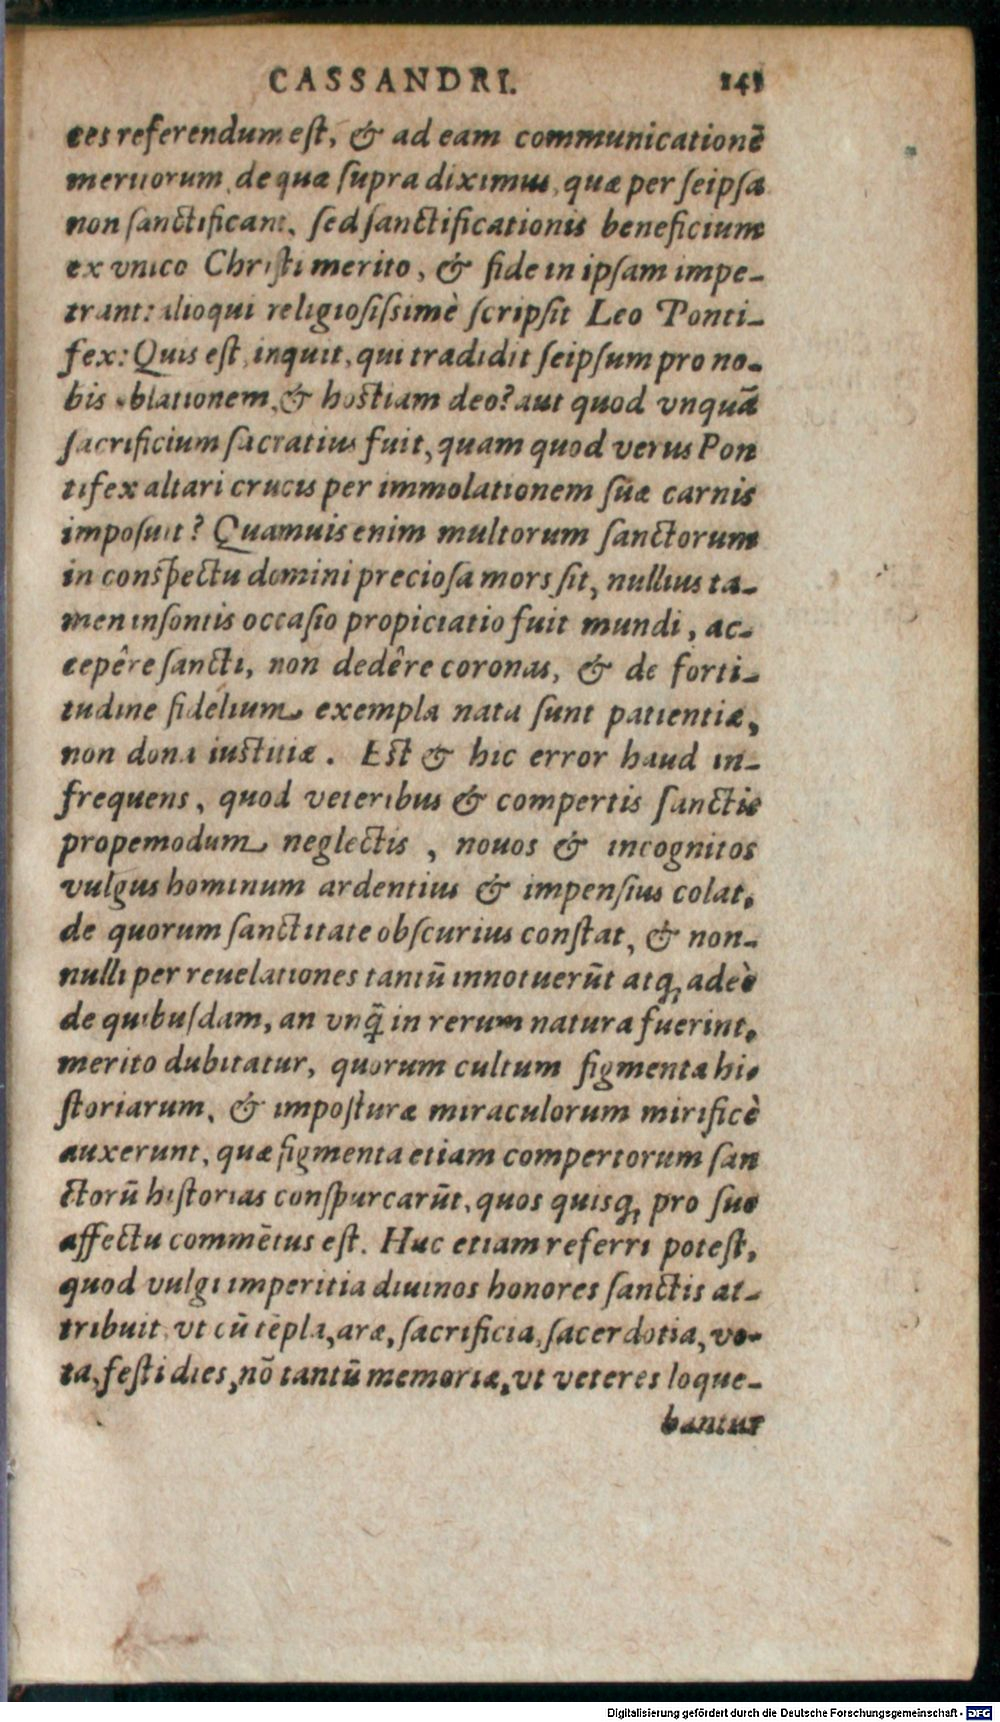 CASSANDRI. 141
ces referendum est, & ad eam communicationē
meritorum, de qua supra diximus, quæ per seipsa
non sanctificant, sed sanctificationis beneficium
ex vnico Christi merito, & fide in ipsam impe-
trant: alioqui religiosissimè scripsit Leo Ponti-
fex: Quis est, inquit, qui tradidit seipsum pro no-
bis oblationem, & hostiam deo? aut quod vnquā
sacrificium sacratius fuit, quam quod verus Pon
tifex altari crucis per immolationem suæ carnis
imposuit? Quamuis enim multorum sanctorum
in conspectu domini preciosa mors sit, nullius ta-
men insontis occasio propiciatio fuit mundi, ac-
cepêre sancti, non dedêre coronas, & de forti-
tudine fidelium exempla nata sunt patientiæ,
non dona iustitiæ. Est & hic error haud in-
frequens, quod veteribus & compertis sanctis
propemodum neglectis, nouos & incognitos
vulgus hominum ardentius & impensius colat,
de quorum sanctitate obscurius constat, & non-
nulli per reuelationes tantū innotuerūt atq; adeò
de quibusdam, an vnq̄ in rerum natura fuerint,
merito dubitatur, quorum cultum figmenta hi-
storiarum, & imposturæ miraculorum mirificè
auxerunt, quæ figmenta etiam compertorum san
ctorū historias conspurcarūt, quos quisq; pro suo
affectu commētus est. Huc etiam referri potest,
quod vulgi imperitia diuinos honores sanctis at-
tribuit, vt cū tēpla, aræ, sacrificia, sacerdotia, vo-
ta, festi dies, nō tantū memoriæ, vt veteres loque-
bantur
Digitalisierung gefördert durch die Deutsche Forschungsgemeinschaft - DFG